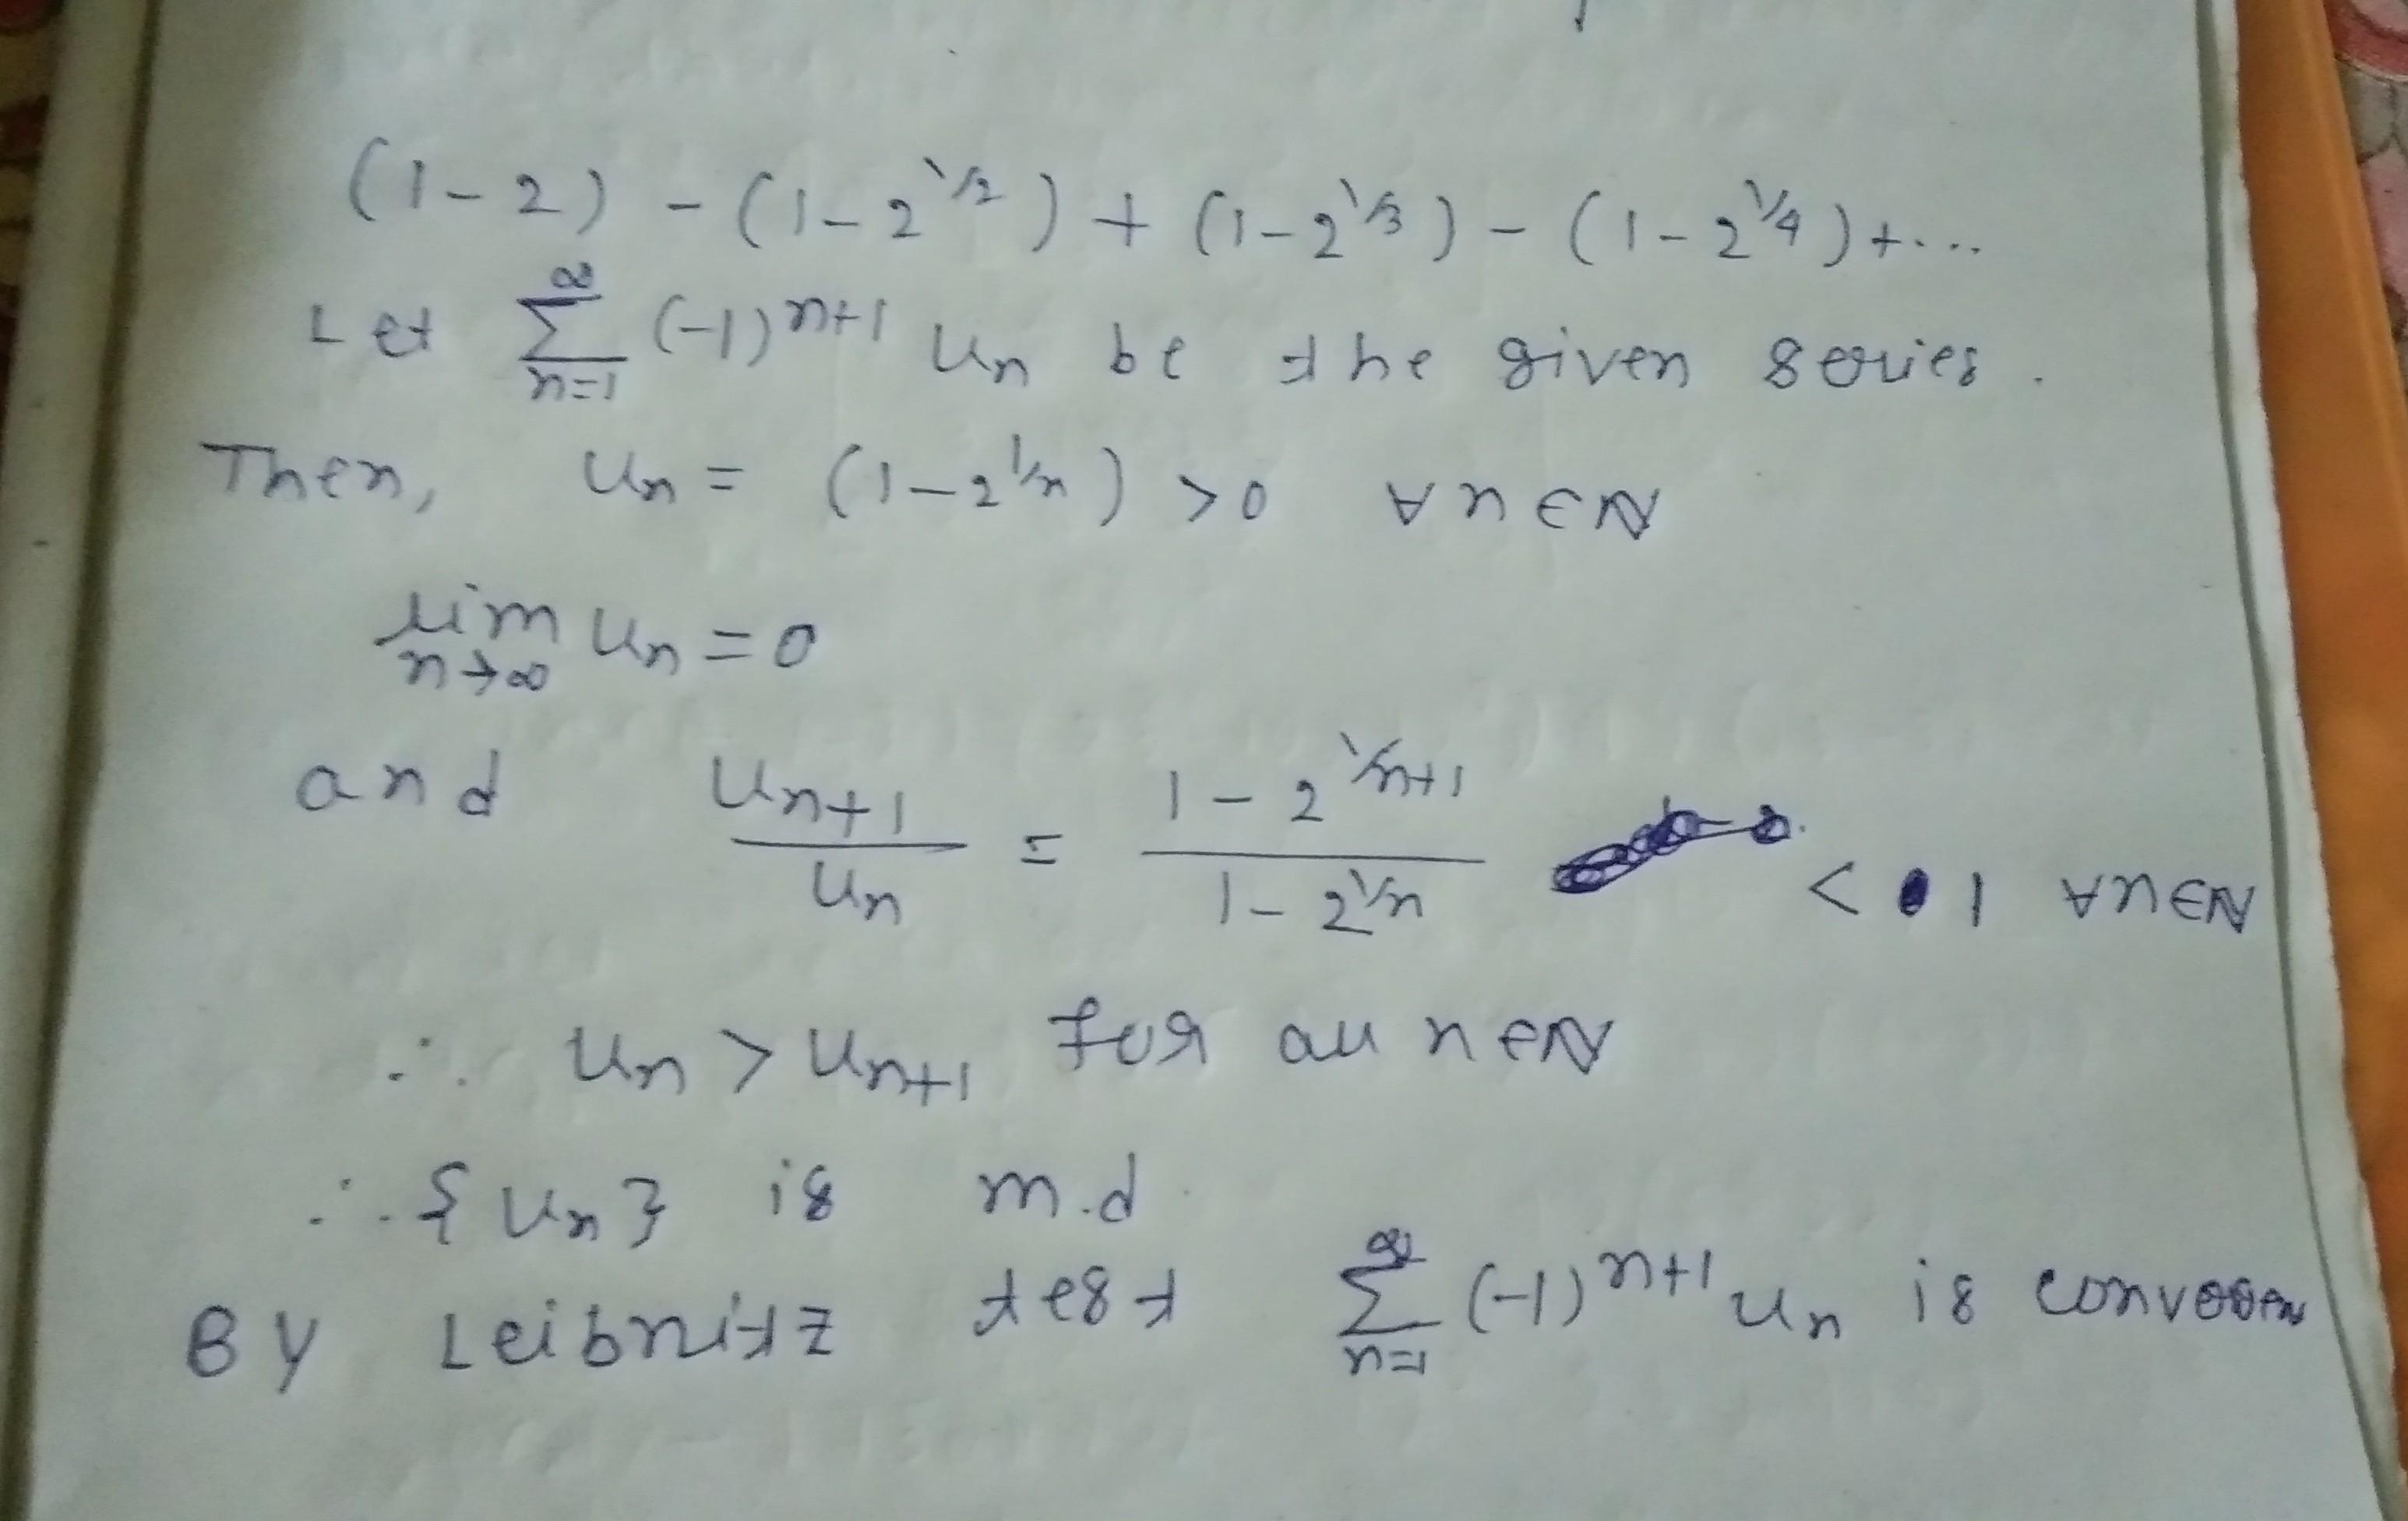 (1-2) - (1-2^{1/2}) + (1-2^{1/3}) - (1-2^{1/4}) + ....
Let \sum_{n=1}^{∞} (-1)^{n+1} u_n be the given series.
Then, u_n = (1-2^{1/n}) >0 ∀ n ∈ N
lim_{n→∞} u_n = 0
and \frac{u_{n+1}}{u_n} = \frac{1-2^{1/n+1}}{1-2^{1/n}} < 1 ∀ n ∈ N
∴ u_n > u_{n+1} for all n ∈ N
∴ {u_n} is m.d
By Leibnitz test \sum_{n=1}^{∞} (-1)^{n+1} u_n is